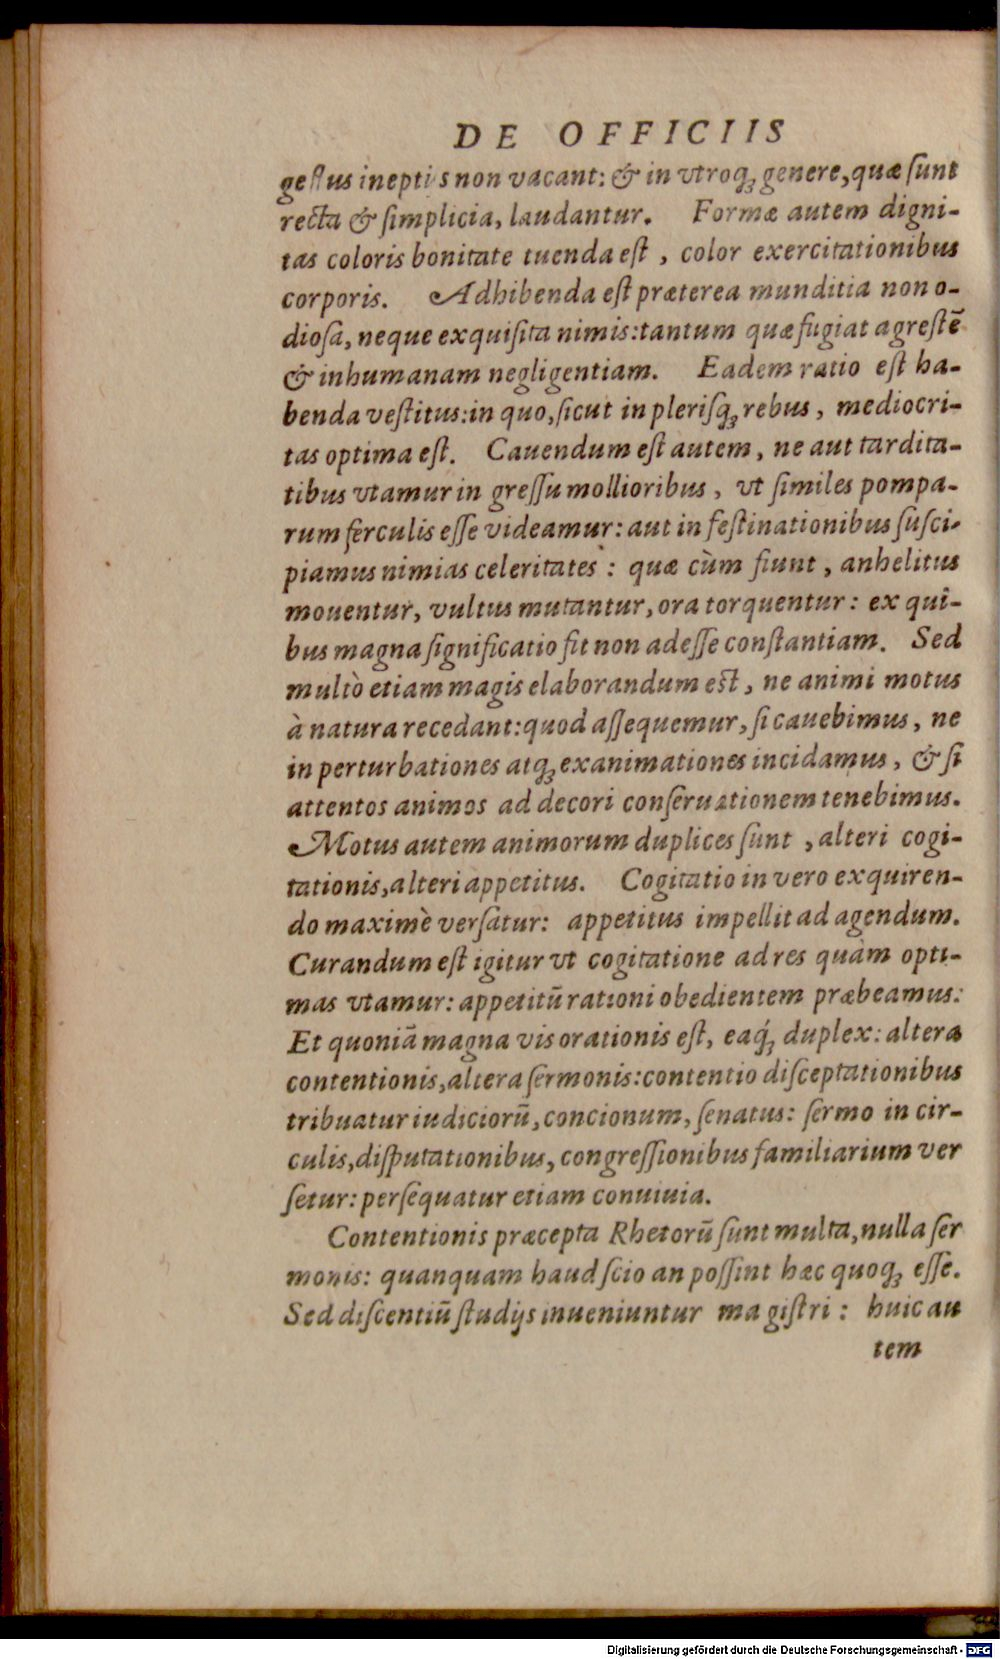 DE OFFICIIS
gestus ineptiis non vacant: & in vtroq; genere, quæ sunt
recta & simplicia, laudantur. Formæ autem digni-
tas coloris bonitate tuenda est, color exercitationibus
corporis. Adhibenda est præterea munditia non o-
diosa, neque exquisita nimis: tantum quæ fugiat agrestē
& inhumanam negligentiam. Eadem ratio est ha-
benda vestitus: in quo, sicut in plerisq; rebus, mediocri-
tas optima est. Cauendum est autem, ne aut tardita-
tibus vtamur in gressu mollioribus, vt similes pompa-
rum ferculis esse videamur: aut in festinationibus susci-
piamus nimias celeritates: quæ cùm fiunt, anhelitus
mouentur, vultus mutantur, ora torquentur: ex qui-
bus magna significatio fit non adesse constantiam. Sed
multò etiam magis elaborandum est, ne animi motus
à natura recedant: quod assequemur, si cauebimus, ne
in perturbationes atq; exanimationes incidamus, & si
attentos animos ad decori conseruationem tenebimus.
Motus autem animorum duplices sunt, alteri cogi-
tationis, alteri appetitus. Cogitatio in vero exquiren-
do maximè versatur: appetitus impellit ad agendum.
Curandum est igitur vt cogitatione ad res quàm opti-
mas vtamur: appetitū rationi obedientem præbeamus:
Et quoniā magna vis orationis est, eaq́; duplex: altera
contentionis, altera sermonis: contentio disceptationibus
tribuatur iudiciorū, concionum, senatus: sermo in cir-
culis, disputationibus, congressionibus familiarium ver
setur: persequatur etiam conuiuia.
Contentionis præcepta Rhetorū sunt multa, nulla ser
monis: quanquam haud scio an possint hæc quoq; esse.
Sed discentiū studijs inueniuntur magistri: huic au
tem
Digitalisierung gefördert durch die Deutsche Forschungsgemeinschaft - DFG